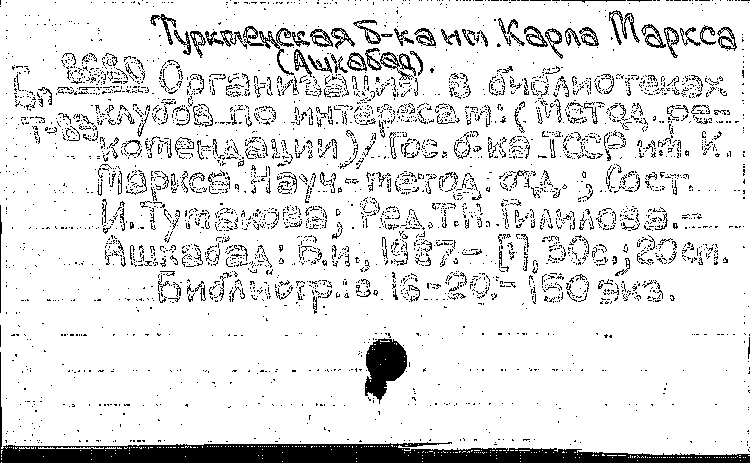 Туркменская б-ка им. Карла Маркса
(Ашкабад).
Бр
Т-89
Организация в библиотеках
клубов по интересам: (Метод. ре-
комендации)/ Гос. б-ка ТССР им. К.
Маркса. Науч.-метод. отд.; Сост.
И. Тумакова; Ред. Т.Н. Гилилова.-
Ашкабад: Б.и., 1987.- [1], 30с.; 20см.
Библиогр.: с. 16-20.- 150 экз.